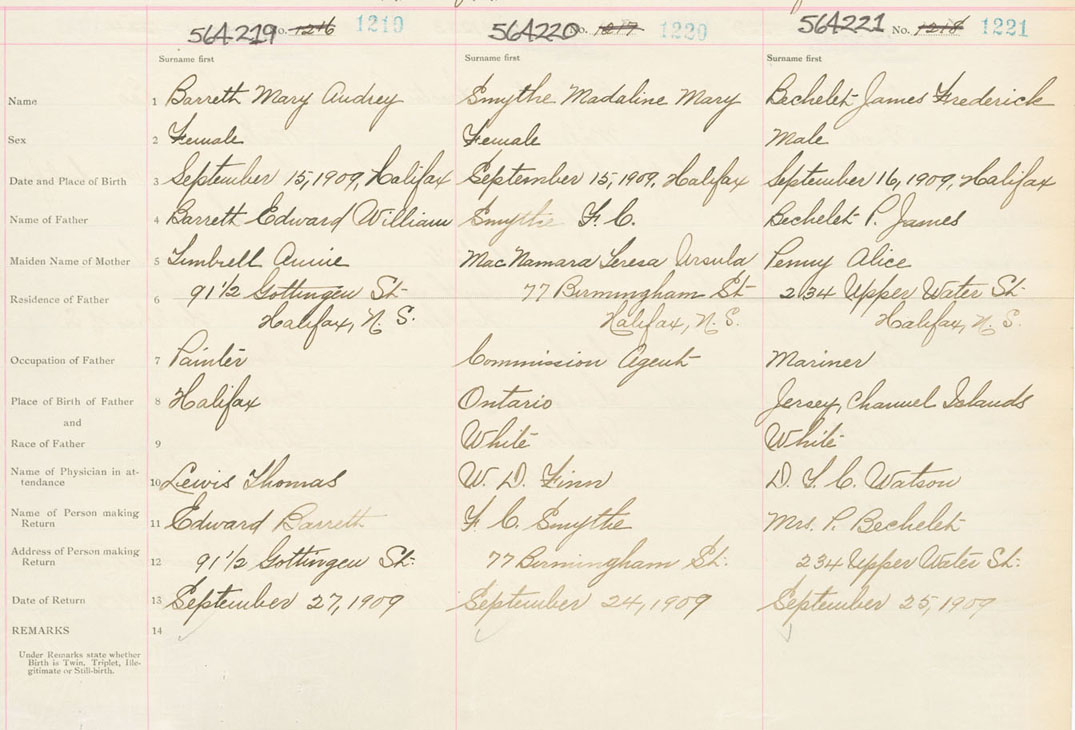 56A219 No. 1216 1219 56A220 No. 1217 1220 56A221 No. 1218 1221
Surname first Surname first Surname first
Name 1 Barrett Mary Audrey Smythe Madaline Mary Bechelet James Frederick
Sex 2 Female Female Male
Date and Place of Birth 3 September 15, 1909, Halifax September 15, 1909, Halifax September 16, 1909, Halifax
Name of Father 4 Barrett Edward William Smythe F. C. Bechelet P. James
Maiden Name of Mother 5 Timbrell Annie MacNamara Teresa Ursula Penny Alice
Residence of Father 6 91 1/2 Gottingen St. 77 Birmingham St 234 Upper Water St.
Halifax, N. S. Halifax, N. S. Halifax, N. S.
Occupation of Father 7 Painter Commission Agent Mariner
Place of Birth of Father 8 Halifax Ontario Jersey, Channel Islands
and
Race of Father 9 White White
Name of Physician in at-
tendance 10 Lewis Thomas W. D. Finn D. T. C. Watson
Name of Person making
Return 11 Edward Barrett F C. Smythe Mrs. P. Bechelet
Address of Person making
Return 12 91 1/2 Gottingen St. 77 Birmingham St. 234 Upper Water St.
Date of Return 13 September 27, 1909 September 24, 1909 September 25, 1909
REMARKS 14
Under Remarks state whether
Birth is Twin, Triplet, Ille-
gitimate or Still-birth.